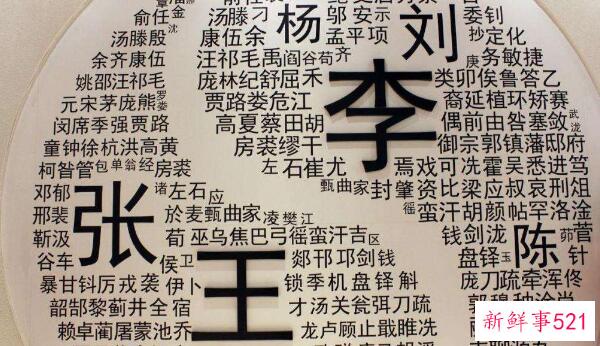 俞任金 汤滕刁 杨 邬安示 刘 委钊
汤滕殷 沈 康伍余 孟平项 抄定化
余齐康伍 汪祁毛禹 阎谷苟 齐 庚 务敏捷
姚邵汪祁毛 庞林纪舒屈禾 李 类卯俟鲁答乙
元宋茅庞熊 罗娄 贾路娄危江 裔延植环矫赛
闵席季强贾路 高夏蔡田胡 偶前由昝塞敛 武
童钟徐杭洪高黄 房裘缪干 御宗郭镇藩邸府
柯昝管 包单翁经 房裘 左 石崔尤 焉戏可冼霍吴悉进笃
邓郁 诸 左石 应 甄曲家 封肇资比梁应叔哀刑俎
邢裴 张 於麦甄曲家 凌樊江 徭 蛮汗胡颜帖罕洛淦
靳汲 荀巫乌焦巴弓徭蛮汗吉 区 钱剑泷 陈 茆菅
谷车 侯卫 王 郯邗邛剑钱 盘铎 玉 针
暴甘钭厉戎袭 伊卜 锁季机盘铎斛 庞刀疏牵浑佟
韶郜黎蓟井全宿 才汤关瓮弭刀疏
赖卓蔺屠蒙池乔 龙卢顾止戢睢冼
新鲜事521